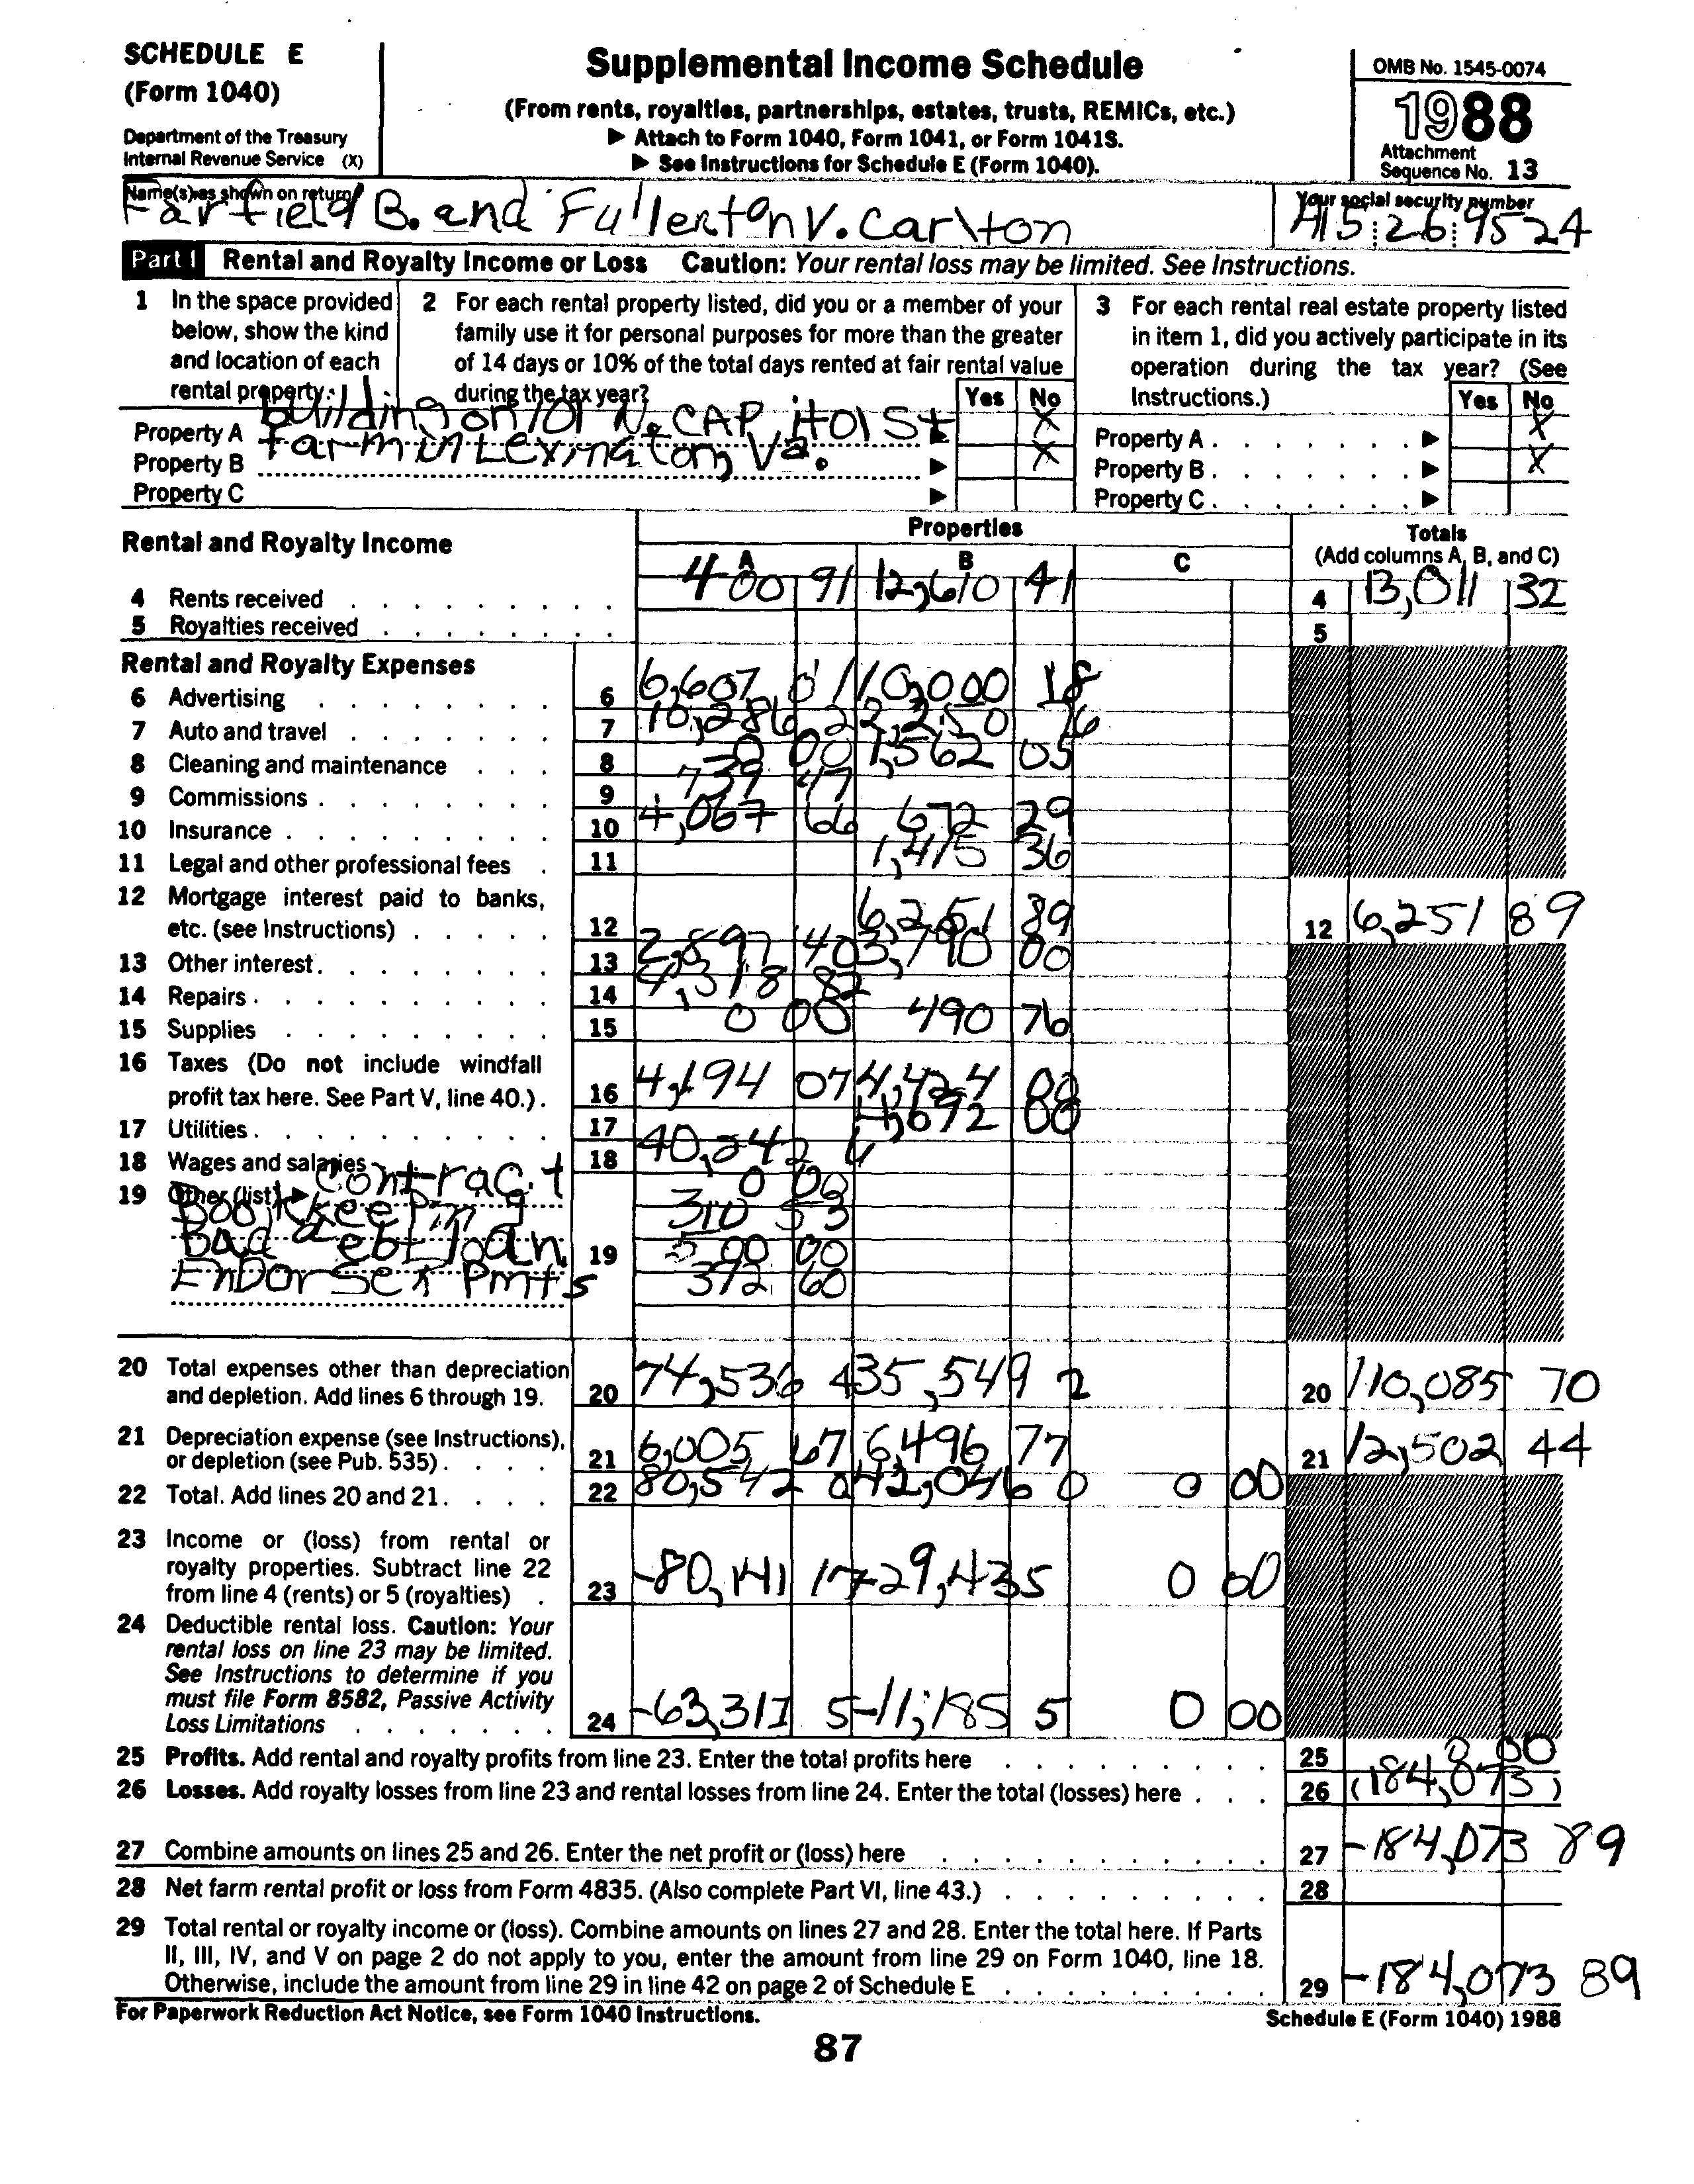 SCHEDULE E
(Form 1040)
Department of the Treasury
Internal Revenue Service (X)
Supplemental Income Schedule
(From rents, royalties, partnerships, estates, trusts, REMICs, etc.)
▶ Attach to Form 1040, Form 1041, or Form 1041S.
▶ See Instructions for Schedule E (Form 1040).
OMB No. 1545-0074
1988
Attachment
Sequence No. 13
Name(s) as shown on return
Farfield B. and Fullerton V. Carlton
Your social security number
415 26 9524
Part I Rental and Royalty Income or Loss Caution: Your rental loss may be limited. See Instructions.
1 In the space provided below, show the kind and location of each rental property:
2 For each rental property listed, did you or a member of your family use it for personal purposes for more than the greater of 14 days or 10% of the total days rented at fair rental value during the tax year?
Yes No
3 For each rental real estate property listed in item 1, did you actively participate in its operation during the tax year? (See Instructions.)
Yes No
Property A building on 101 N. CAPitol St ▶ X Property A ▶ X
Property B Farm in Lexington, Va. ▶ X Property B ▶ X
Property C ▶ Property C ▶
Rental and Royalty Income
Properties
A B C
Totals
(Add columns A, B, and C)
4 Rents received 400 91 12,610 41 4 13,011 32
5 Royalties received 5
Rental and Royalty Expenses
6 Advertising 6 6,607 01 10,000 18
7 Auto and travel 7 10,286 2 2,250 76
8 Cleaning and maintenance 8 0 00 1,562 05
9 Commissions 9 739 47
10 Insurance 10 4,067 66 672 29
11 Legal and other professional fees 11 1,415 36
12 Mortgage interest paid to banks, etc. (see Instructions) 12 6,251 89 12 6,251 89
13 Other interest 13 2,897 40 3,790 00
14 Repairs 14 4,318 82
15 Supplies 15 0 00 490 76
16 Taxes (Do not include windfall profit tax here. See Part V, line 40.) 16 4,194 07 4,424
17 Utilities 17 4,692 00
18 Wages and salaries 18 40,242
19 Other (list) ▶ Contract 0 00
Bookkeeping 310 53
Bad debt loan 19 500 00
Endorsex Pmts 372 60
20 Total expenses other than depreciation and depletion. Add lines 6 through 19. 20 74,536 4 35,549 2 20 110,085 70
21 Depreciation expense (see Instructions), or depletion (see Pub. 535) 21 6,005 67 6,496 77 21 12,502 44
22 Total. Add lines 20 and 21 22 80,542 0 42,046 0 0 00
23 Income or (loss) from rental or royalty properties. Subtract line 22 from line 4 (rents) or 5 (royalties) 23 -80,141 17 -29,435 0 00
24 Deductible rental loss. Caution: Your rental loss on line 23 may be limited. See Instructions to determine if you must file Form 8582, Passive Activity Loss Limitations 24 -63,311 5 -11,185 5 0 00
25 Profits. Add rental and royalty profits from line 23. Enter the total profits here 25 0 00
26 Losses. Add royalty losses from line 23 and rental losses from line 24. Enter the total (losses) here 26 (184,073)
27 Combine amounts on lines 25 and 26. Enter the net profit or (loss) here 27 -184,073 89
28 Net farm rental profit or loss from Form 4835. (Also complete Part VI, line 43.) 28
29 Total rental or royalty income or (loss). Combine amounts on lines 27 and 28. Enter the total here. If Parts II, III, IV, and V on page 2 do not apply to you, enter the amount from line 29 on Form 1040, line 18. Otherwise, include the amount from line 29 in line 42 on page 2 of Schedule E 29 -184,073 89
For Paperwork Reduction Act Notice, see Form 1040 Instructions.
Schedule E (Form 1040) 1988
87